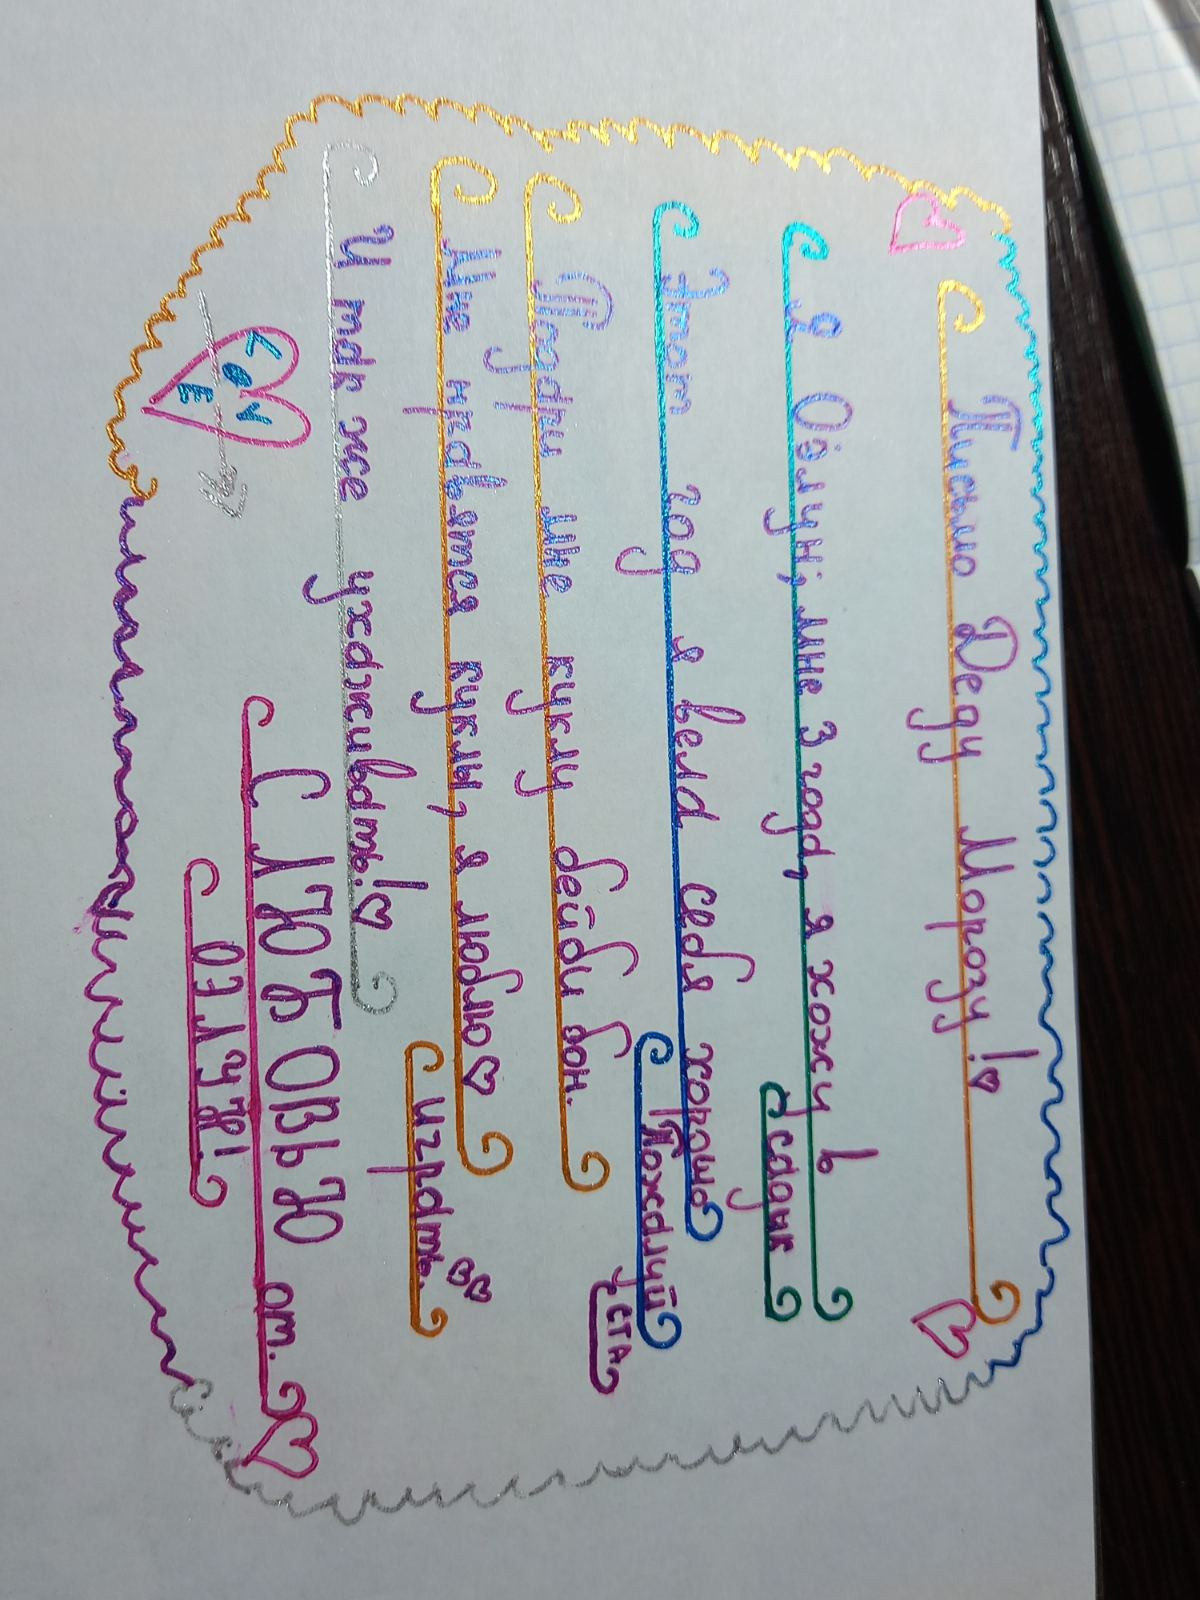 Письмо Деду Морозу!
Я Оэлун, мне 3 года, я хожу в
садик
Этот год я вела себя хорошо
Пожалуй
ста
Подари мне куклу бейби бон.
Мне нравятся куклы, я люблю
играть.
И так же ухаживать!
LOVE
С ЛЮБОВЬЮ от.